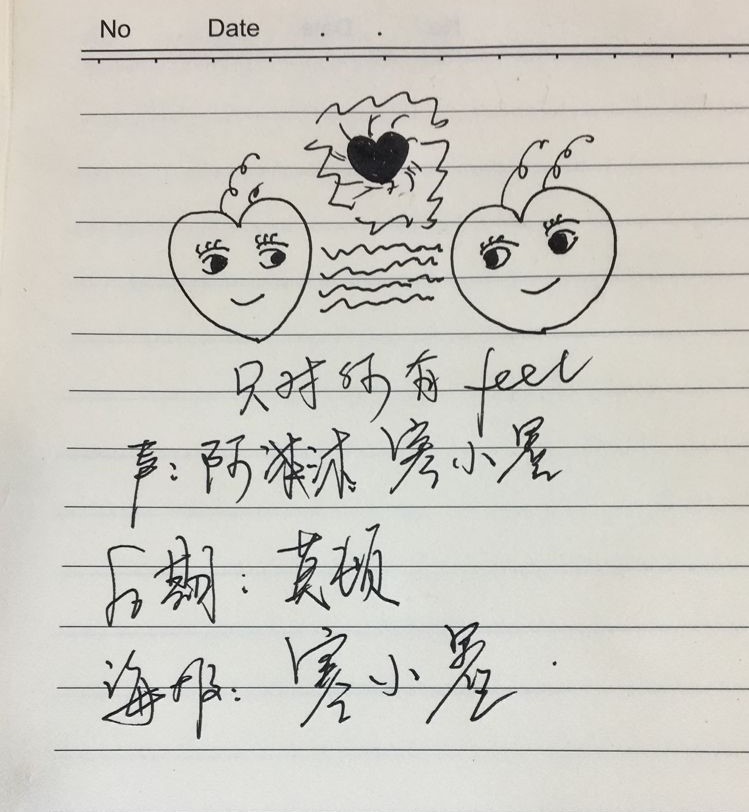 No Date . .
只对你有 feel
声：阿淋沫 寒小墨
后期：莫顿
海报：寒小墨